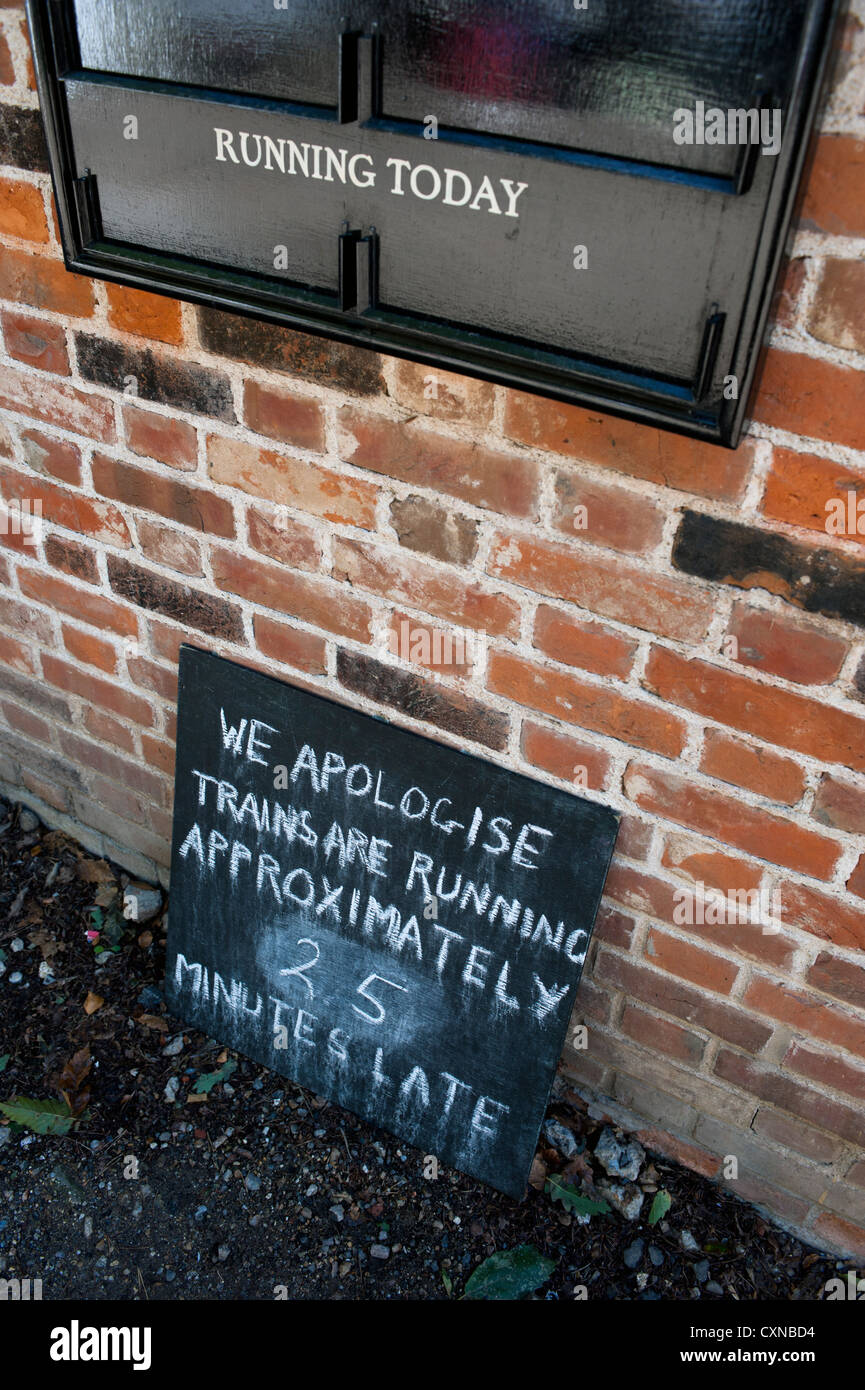 RUNNING TODAY
WE APOLOGISE
TRAINS ARE RUNNING
APPROXIMATELY
25
MINUTES LATE
alamy
alamy
Image ID: CXNBD4
www.alamy.com